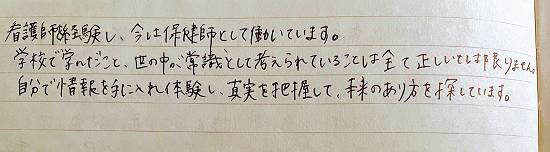 看護師経験し、今は保健師として働いています。
学校で学んだこと、世の中が常識として考えられていることは全て正しいとは限りません。
自分で情報を手に入れ体験し、真実を把握して、本来のあり方を探しています。